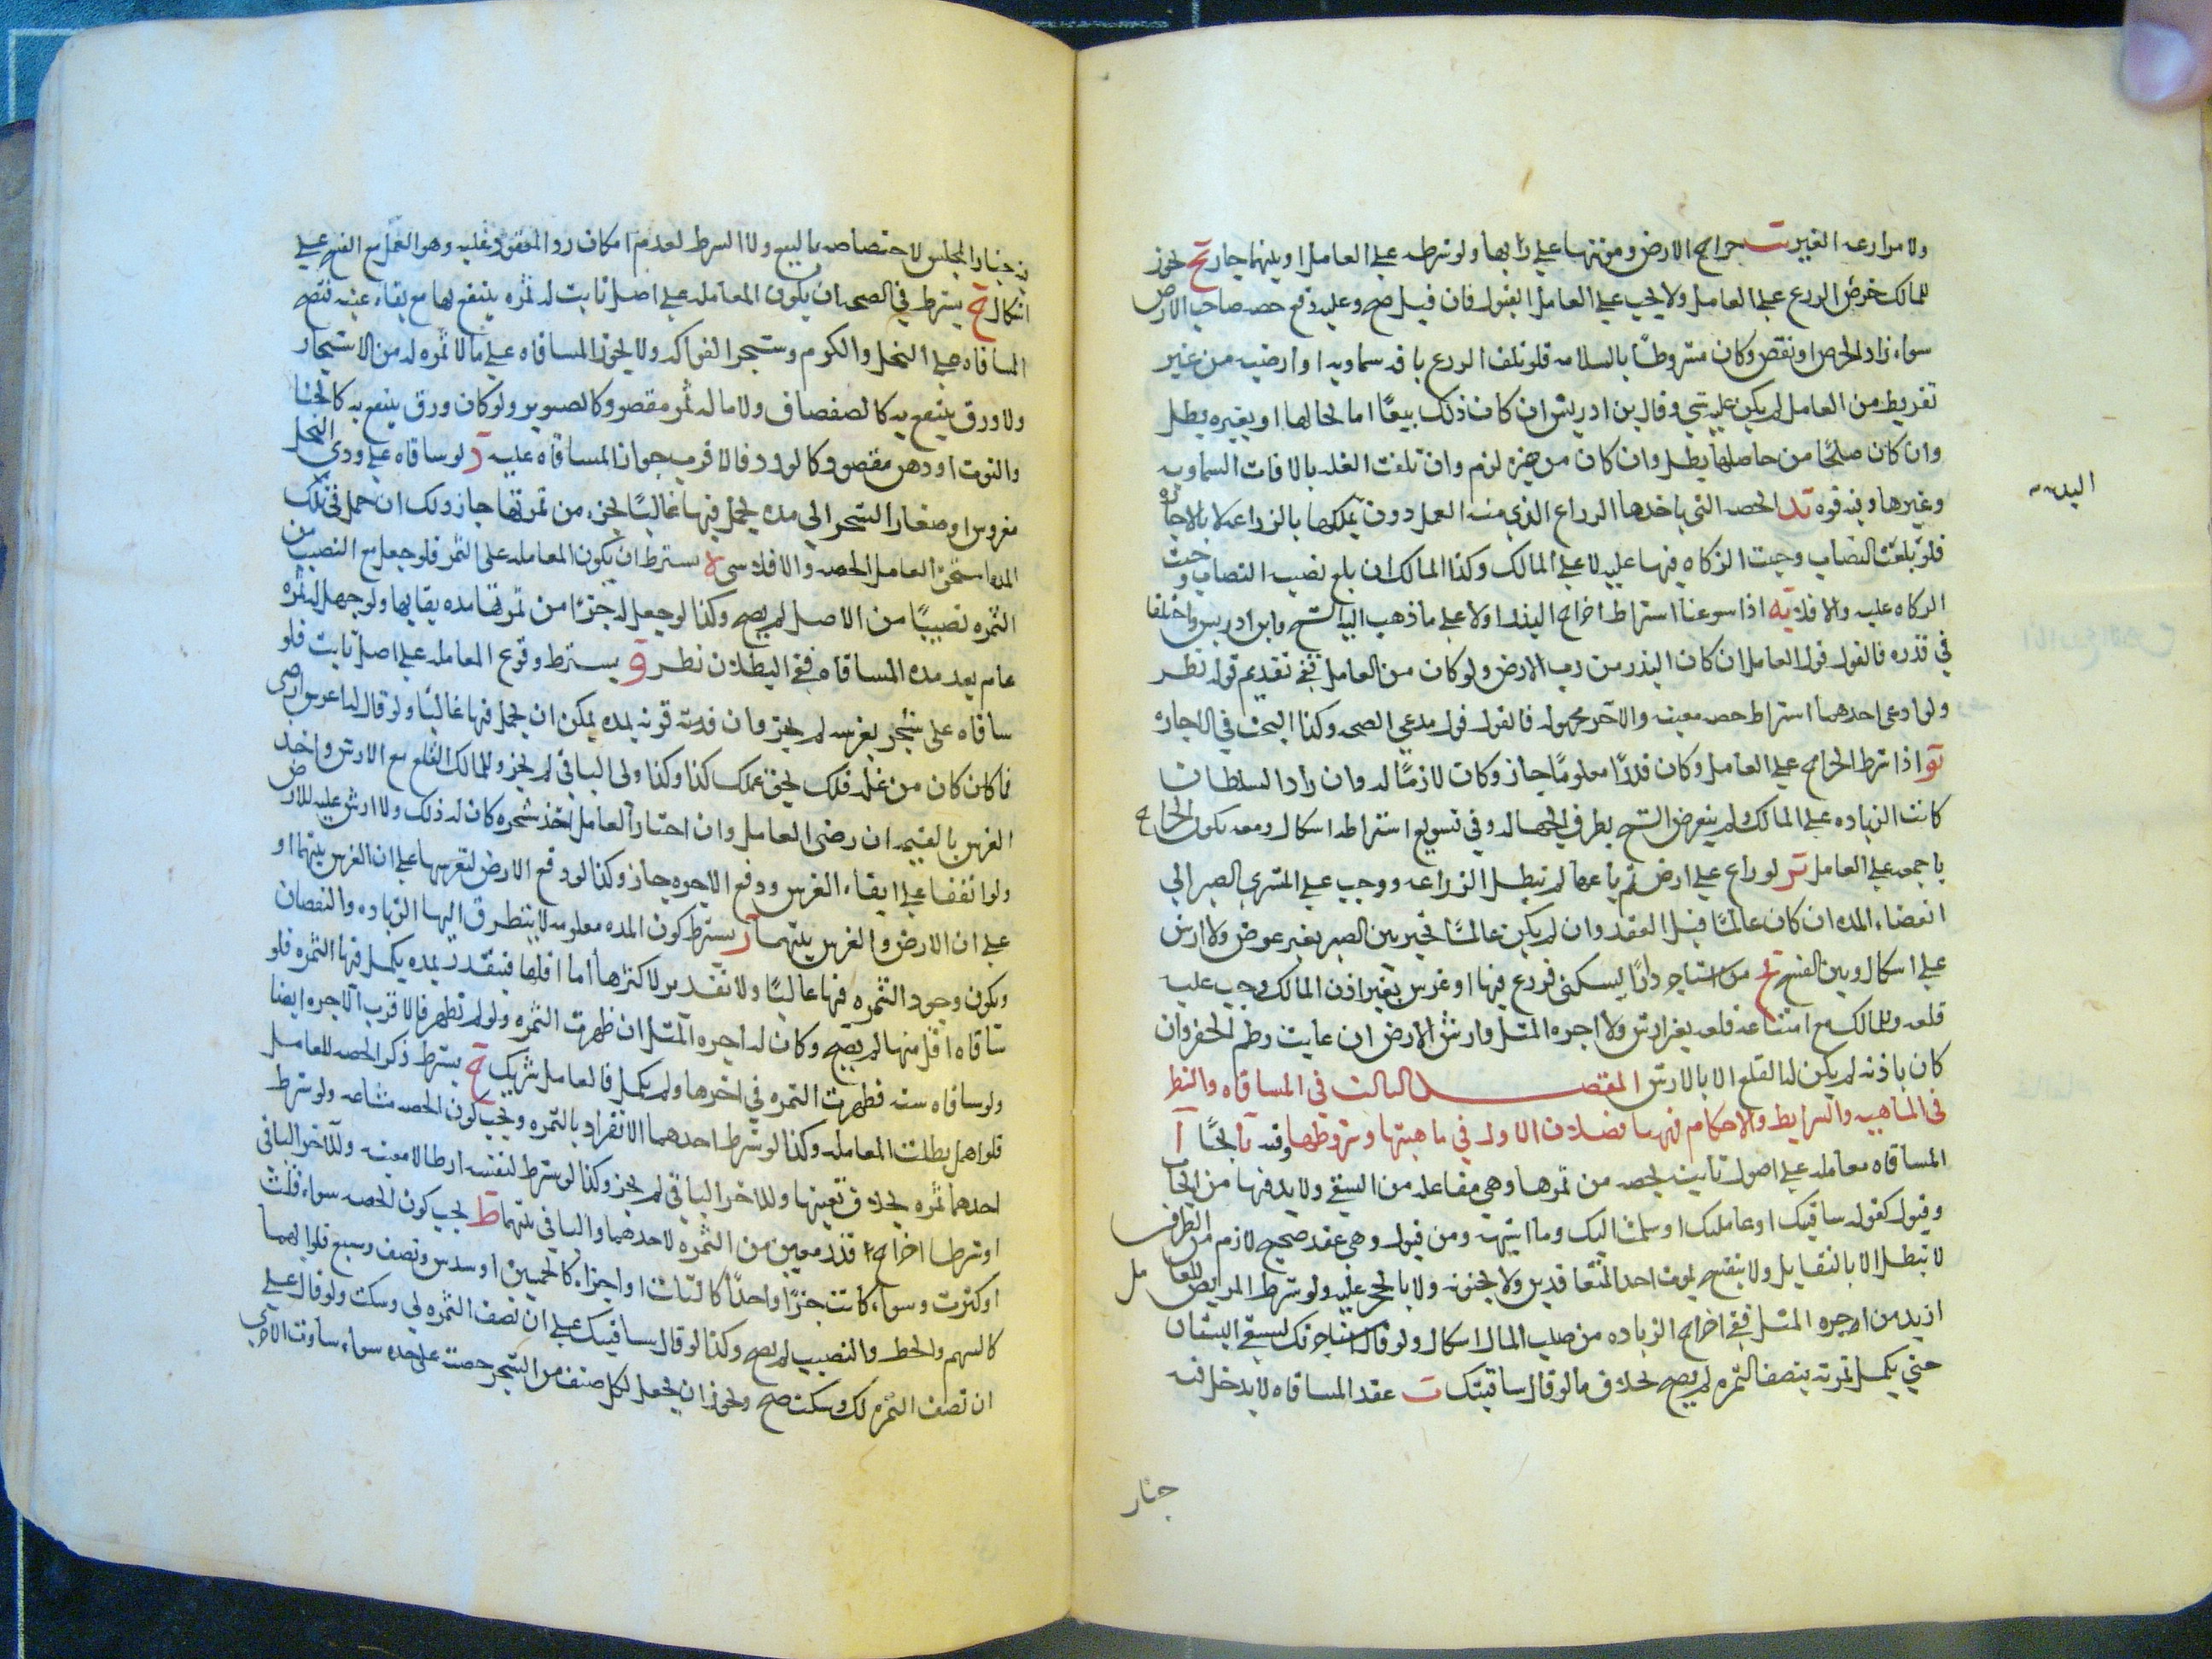 ولا مزارعه الغير يب خراج الارض ومؤنتها على ربها ولو شرطه على العامل او بينهما جاز يج يجوز
للمالك خرص الزرع على العامل ولا يجب على العامل القبول فان قبل صح وعليه دفع حصه صاحب الارض
سواء زاد الخرص او نقص وكان مشروطًا بالسلامه فلو تلف الزرع بافه سماويه او ارضيه من غير
تفريط من العامل لم يكن عليه شي وقال بن ادريس ان كان ذلك بيعًا اما لحالها او بغيره بطل
وان كان صلحًا من حاصلها بطل وان كان من غيره لزم وان تلفت الغله بالافات السماويه
وغيرها وفيه قوه يد الحصه التي ياخذها الزراع الذي منه العمل دون يملكها بالزراعه لا بالاجاره
فلو بلغت النصاب وجبت الزكاه فيها عليه لا على المالك وكذا المالك ان بلغ نصيبه النصاب وجبت
الزكاه عليه والا فلا يه اذا سوغنا اشتراط اخراج البذر اولا على ما ذهب اليه الشيخ وابن ادريس واختلفا
في قدره فالقول قول العامل ان كان البذر من رب الارض ولو كان من العامل ففي تقديم قوله نظر
ولو ادعى احدهما اشتراط حصه معينه والآخر مجهوله فالقول قول مدعي الصحه وكذا البحث في الاجاره
يو اذا شرط الخراج على العامل وكان قدرًا معلومًا جاز وكان لازمًا له وان زاد السلطان
كانت الزياده على المالك ولم يتعرض الشيخ بطرفي الجهاله وفي تسويغ اشتراطه اشكال ومعه يكون الخراج
باجمعه على العامل يز لو زارع على ارض ثم باعها لم تبطل الزراعه ووجب على المشتري الصبر الي
انقضاء المده ان كان عالمًا قبل العقد وان لم يكن عالمًا تخير بين الصبر بغير عوض ولا ارش
على اشكال وبين الفسخ يح من استاجر دارًا ليسكنى فزرع فيها او غرس بغير اذن المالك وجب عليه
قلعه وللمالك مع امتناعه قلعه بغير ارش ولا اجره المثل وارش الارض ان عابت وطم الحفر وان
كان باذنه لم يكن له القلع الا بالارش المقصد الثالث فى المساقاه والنظر
فى الماهيه والشرايط والاحكام فيهنا فصلان الاول في ماهيتها وشروطها وفيه يا بحثًا آ
المساقاه معامله على اصول ثابت بحصه من ثمرها وهي مفاعله من السقي ولا بد فيها من ايجاب
وقبول كقوله ساقيتك او عاملتك او سلمت اليك وما اشبهه ومن قبول وهي عقد صحيح لازم من الطرفين
لا تبطل الا بالتقايل ولا ينفسخ بموت احد المتعاقدين ولا بجنونه ولا بالحجر عليه ولو شرط المريض للعامل
ازيد من اجره المثل ففي اخراج الزياده من صلب المال اشكال ولو قال استاجرتك لسقي البستان
حتي يكمل ثمرته بنصف الثمره لم يصح بخلاف ما لو قال ساقيتك ب عقد المساقاه لا يدخل فيه
خيار
فيه خيار المجلس لاختصاصه بالبيع ولا الشرط لعدم امكان رد المعقود عليه وهو العمل مع الفسخ على
اشكال ج يشترط في الصحه ان يكون المعامله على اصل ثابت له ثمره ينتفع بها مع بقاء عينه فتصح
المساقاه على النخل والكرم وشجر الفواكه ولا يجوز المساقاه على ما لا ثمره له من الاشجار
ولا ورق ينتفع به كالصفصاف ولا ما له ثمر مقصود كالصنوبر ولو كان ورق ينتفع به كالحنا
والتوت او دهن مقصود كالورد فالاقرب جواز المساقاه عليه د لو ساقاه على ودي النخل
مغروس او صغار الشجر الي مده يحمل فيها غالبًا بجزء من ثمرتها جاز وذلك ان حمل في تلك
المده استحق العامل الحصه والا فلا شى ه يشترط ان يكون المعامله على الثمر فلو جعل مع النصيب من
الثمره نصيبًا من الاصل لم يصح وكذا لو جعل له جزءًا من ثمرتها مده بقايها ولو جعل له ثمره
عام بعد مده المساقاه ففي البطلان نظر و يشترط وقوع المعامله على اصل ثابت فلو
ساقاه على شجر يغرسه لم يجز وان قدرته قرنه بمده يمكن ان يحمل فيها غالبًا ولو قال له اغرس ارضي
فما كان كان من غله فلك بحق عملك كذا وكذا ولى الباقي لم يجز وللمالك القلع مع الارش واخذ
الغرس بالقيمه ان رضى العامل وان اختار العامل اخذ شجره كان له ذلك ولا ارش عليه للارض
ولو اتفقا على ابقاء الغرس ودفع الاجره جاز وكذا لو دفع الارض لتغرسها على ان الغرس بينهما او
على ان الارض والغرس بينهما ز يشترط كون المده معلومه لا يتطرق اليها الزياده والنقصان
ويكون وجود الثمره فيها غالبًا ولا تقدير لاكثرها اما اقلها فيتقدر بمده يكمل فيها الثمره فلو
ساقاه اقل منها لم يصح وكان له اجره المثل ان ظهرت الثمره ولو لم تظهر فالاقرب الاجره ايضا
ولو ساقاه سنه فظهرت الثمره في اخرها ولم يكمل فالعامل شريك ح يشترط ذكر الحصه للعامل
فلو اهمل بطلت المعامله وكذا لو شرط احدهما الانفراد بالثمره ويجب كون الحصه مشاعه ولو شرط
احدهما ثمره بخلاف تعينها وللاخر الباقي لم يجز وكذا لو شرط لنفسه ارطالا معينه وللاخر الباقي
او شرطا اخراج قدر معين من الثمره لاحدهما والباقي بينهما ط يجب كون الحصه سواء قلت
او كثرت وسواء كانت جزءًا واحدًا كالثلث او اجزاء كالخمسين او سدس ونصف وسبع فلو ابهما
كالسهم والحظ والنصيب لم يصح وكذا لو قال ساقيتك على ان نصف الثمره لي وسكت ولو قال على
ان نصف الثمره لك وسكت صح ويجوز ان يجعل لكل صنف من الشجر حصه على حده سواء ساوت الاخرى